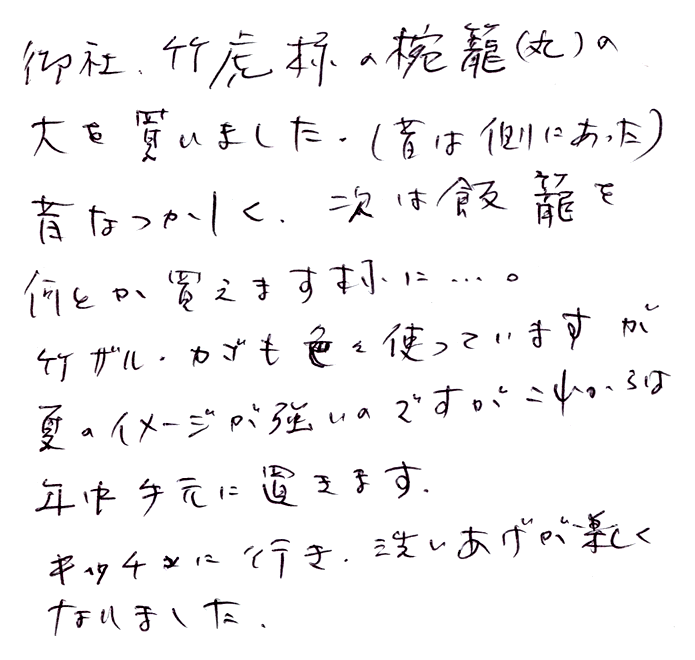 御社、竹虎様の椀籠(丸)の
大を買いました。(昔は側にあった)
昔なつかしく、次は飯籠を
何とか買えます様に…。
竹ザル・カゴも色々使っていますが
夏のイメージが強いのですがこれからは
年中手元に置きます。
キッチンに行き、洗いあげが楽しく
なりました。